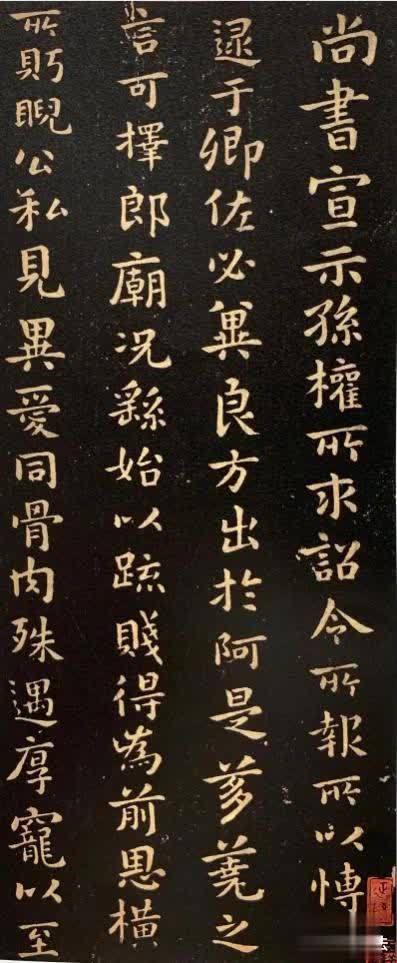 尚書宣示孫權所求詔令所報所以博
逮于卿佐必冀良方出於阿是芻蕘之
言可擇郎廟況繇始以疏賤得為前恩橫
所眄睨公私見異愛同骨肉殊遇厚寵以至